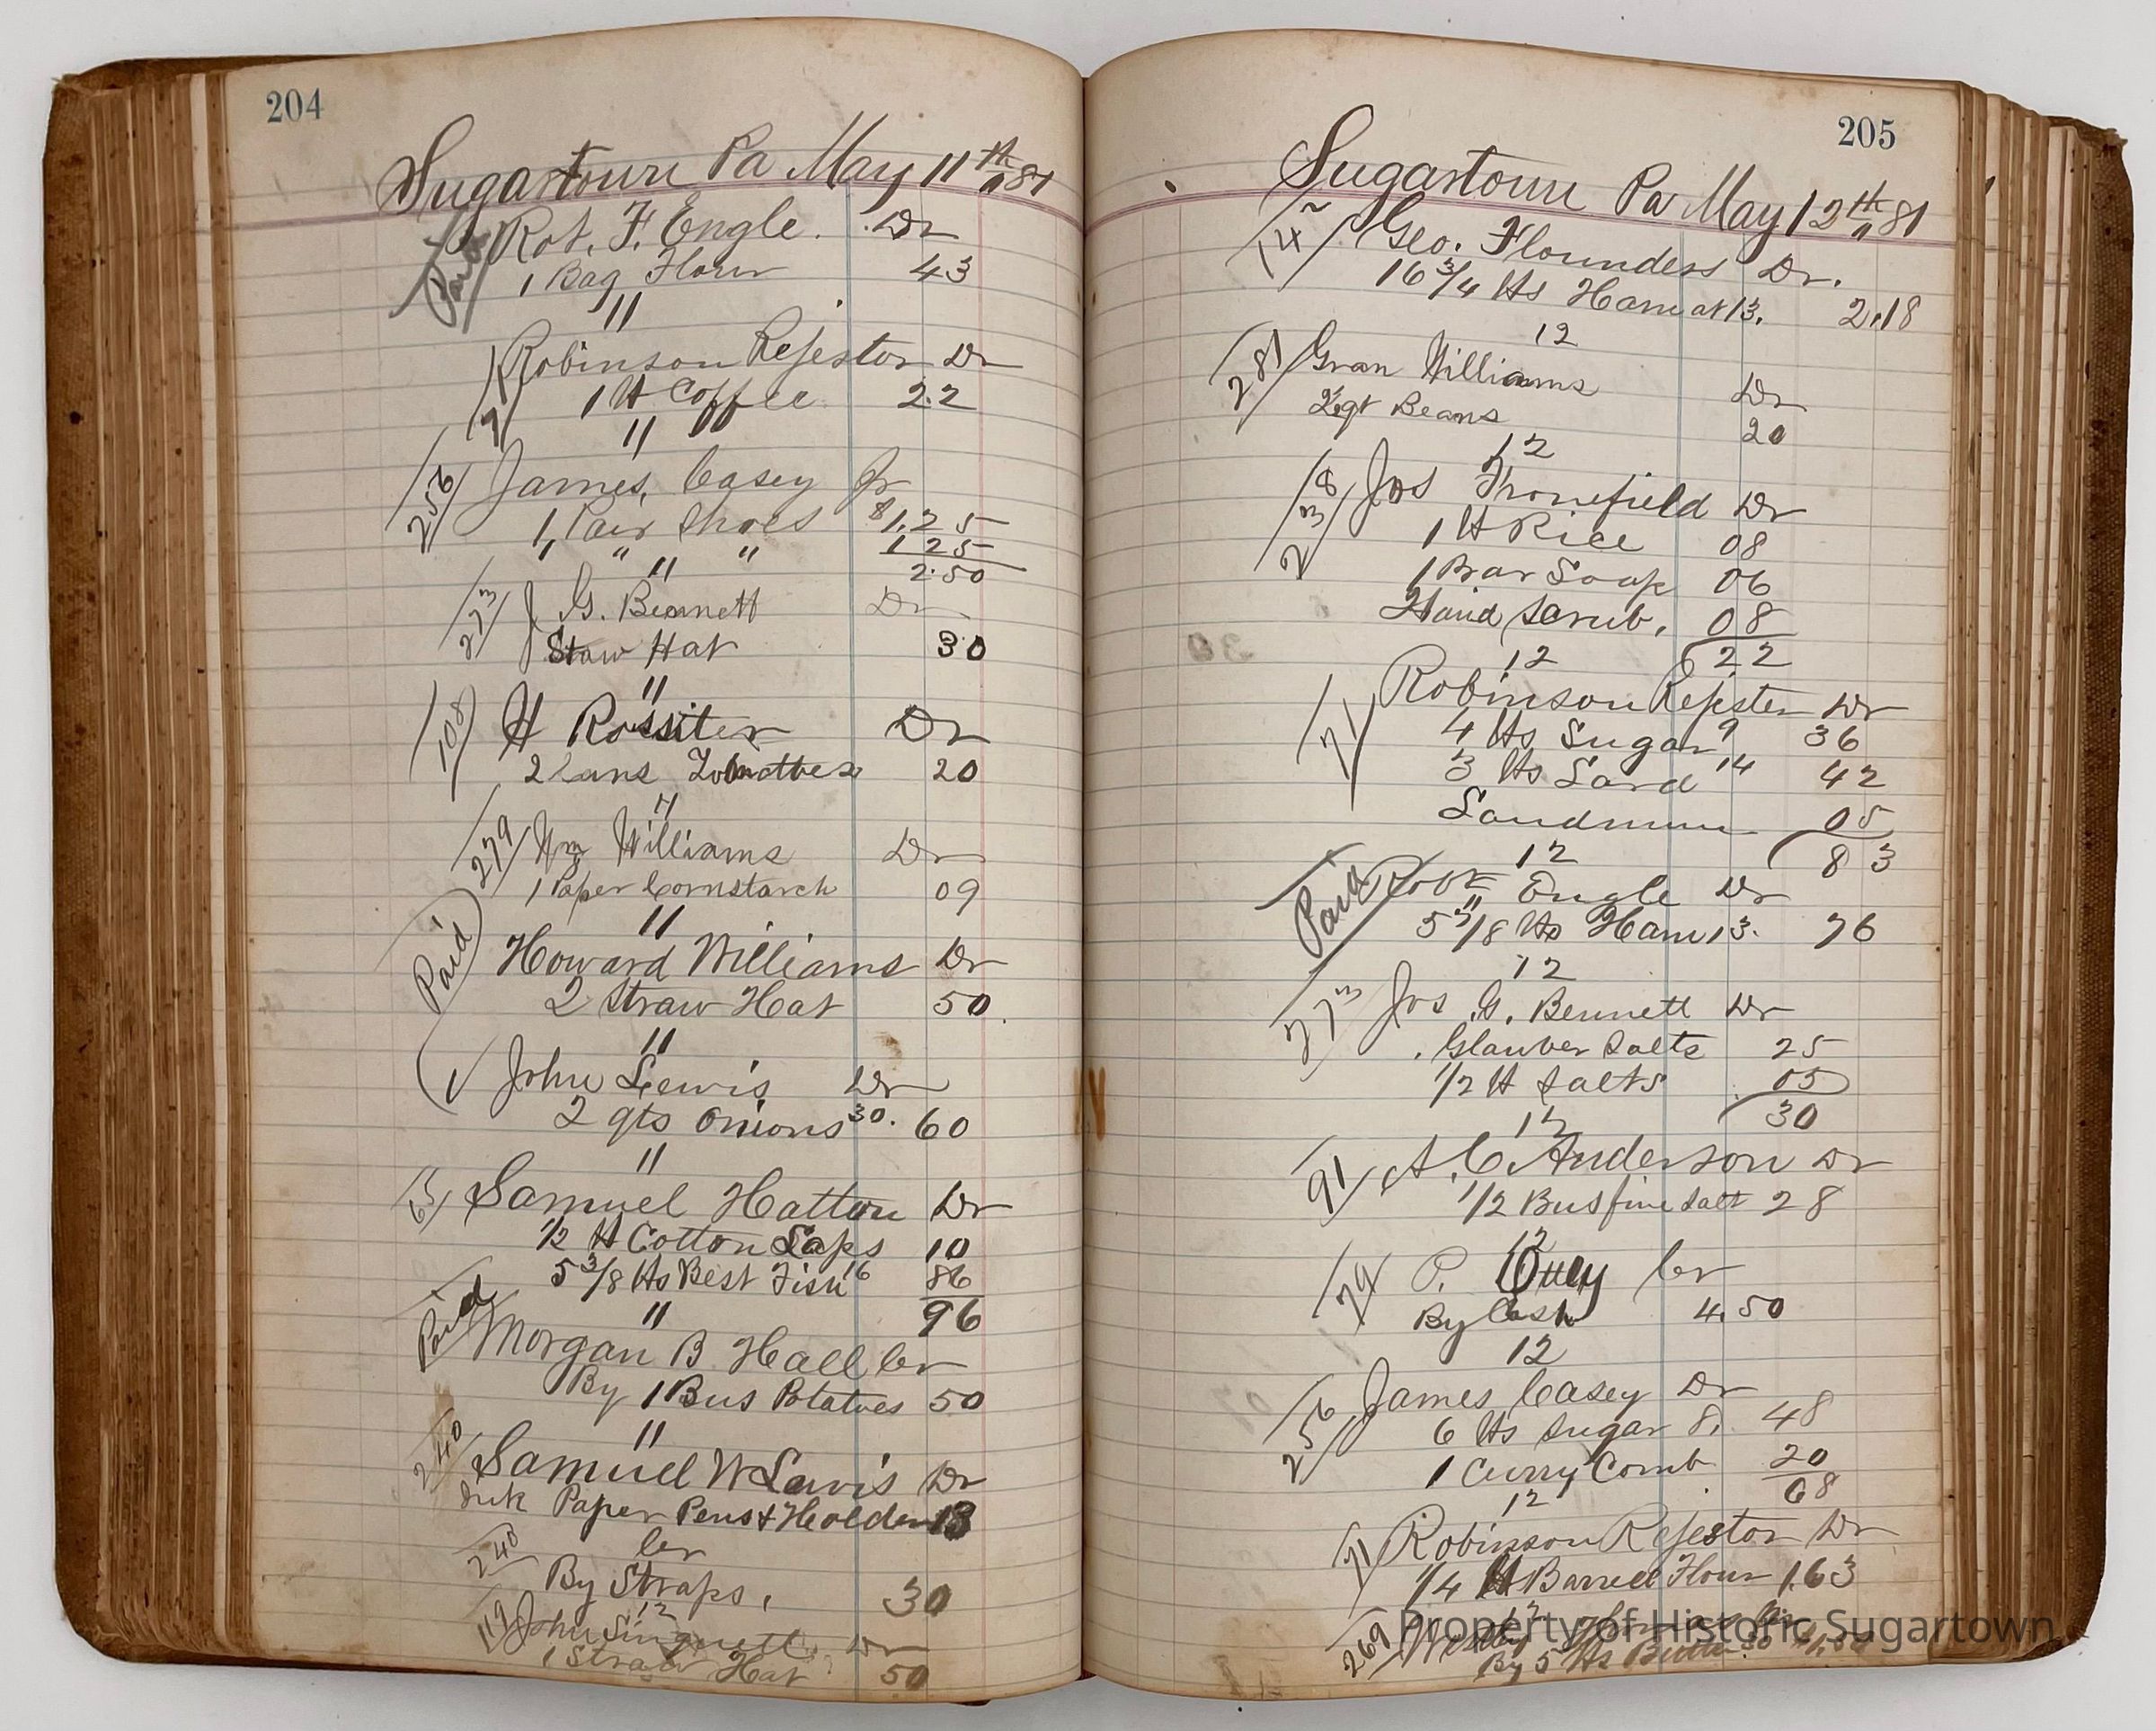 204
Sugartown Pa May 11th 81
Paid
Rot. F. Engle. Dr
1 Bag Flour 43
"
71 Robinson Rejestor Dr
1 lb Coffee 22
"
256 James Casey Jr
1 Pair Shoes $1.25
1 " " " 125
" 2.50
273 J G. Bennett Dr
Staw Hat 30
"
108 H Rossiter Dr
2 Cans Tomattoes 20
11
279 Wm Williams Dr
1 Paper Cornstarch 09
"
Paid Howard Williams Dr
2 Straw Hat 50
"
John Lewis Dr
2 qts Onions 30. 60
"
65 Samuel Hatton Dr
1/2 lb Cotton Laps 10
5 3/8 lbs Best Fish 16 86
" 96
Paid Morgan B Hall Cr
By 1 Bus Potatoes 50
"
240 Samuel W Lewis Dr
Ink Paper Pens & Holder 13
240 Cr
By Straps, 30
12
119 John Dr
1 Straw Hat 50
205
Sugartown Pa May 12th 81
142 Geo. Flounders Dr.
16 3/4 lbs Ham at 13. 2.18
12
281 Gran Williams Dr
2 qt Beans 20
12
238 Jos Fronefield Dr
1 lb Rice 08
1 Bar Soap 06
Hand Scrub. 08
12 22
71 Robinson Rejester Dr
4 lbs Sugar 9 36
3 lbs Lard 14 42
Sandmun 05
12 83
Paid Engle Dr
5 7/8 lbs Ham 13. 76
12
273 Jos .G. Bennett Dr
Glauber Salts 25
1/2 lb Salts 05
12 30
91 A. C. Anderson Dr
1/2 Bus fine Salt 28
12
79 P. Quey Cr
By Cash 4.50
12
256 James Casey Dr
6 lbs Sugar 8. 48
1 Curry Comb 20
12 68
71 Robinson Rejestor Dr
1/4 Barrell Flour 1.63
12
269
By 5 lbs Butter 30
Property of Historic Sugartown